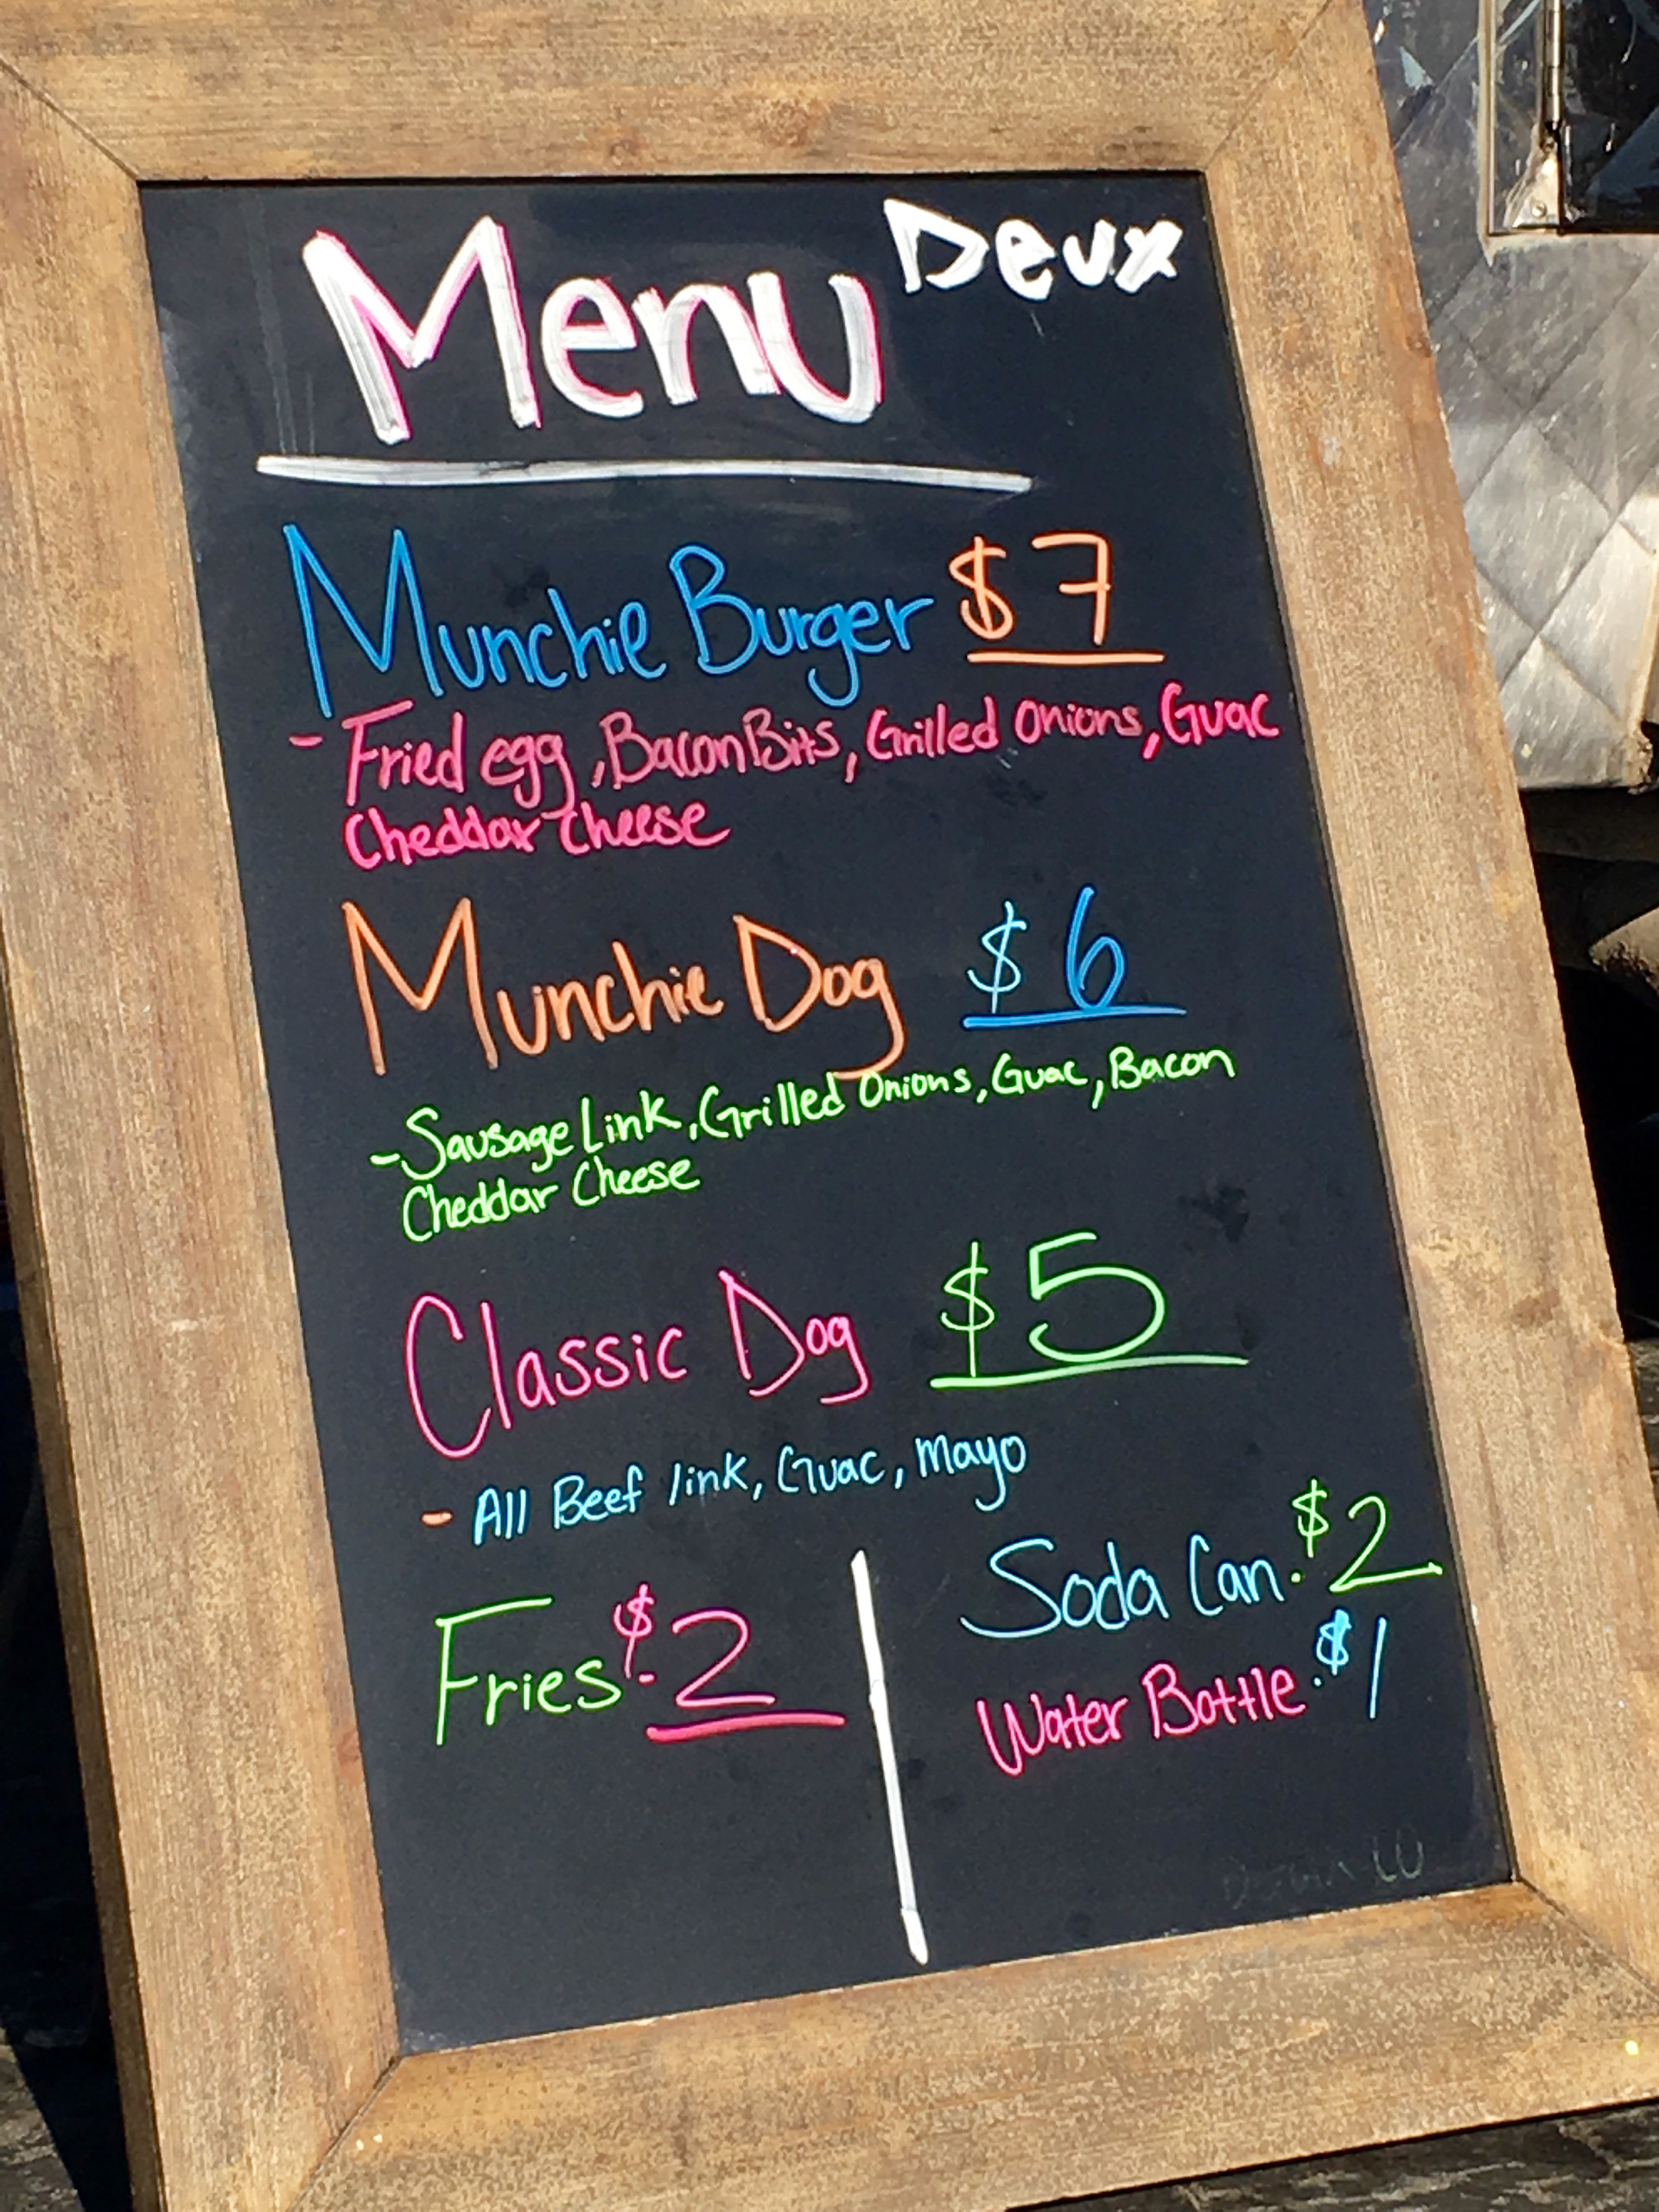 Menu Deux
Munchie Burger $7
- Fried egg, Bacon Bits, Grilled Onions, Guac
Cheddar Cheese
Munchie Dog $6
- Sausage Link, Grilled Onions, Guac, Bacon
Cheddar Cheese
Classic Dog $5
- All Beef link, Guac, Mayo
Fries $2
Soda Can. $2
Water Bottle. $1